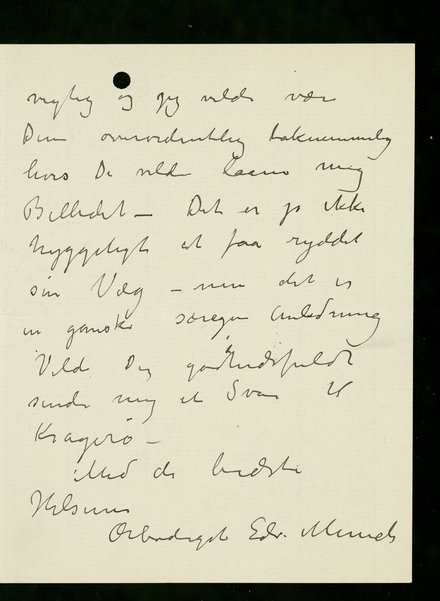 vigtig og jeg vilde være
Dem overordentlig taknemmelig
hvis De vilde laane mig
Billedet – Det er jo ikke
hyggeligt at faa ryddet
sin Væg – men det er
en ganske særegen Anledning
Vilde De godhedsfuldt
sende mig et Svar til
Kragerø –
Med de bedste
Hilsener
Ærbødigst Edv. Munch